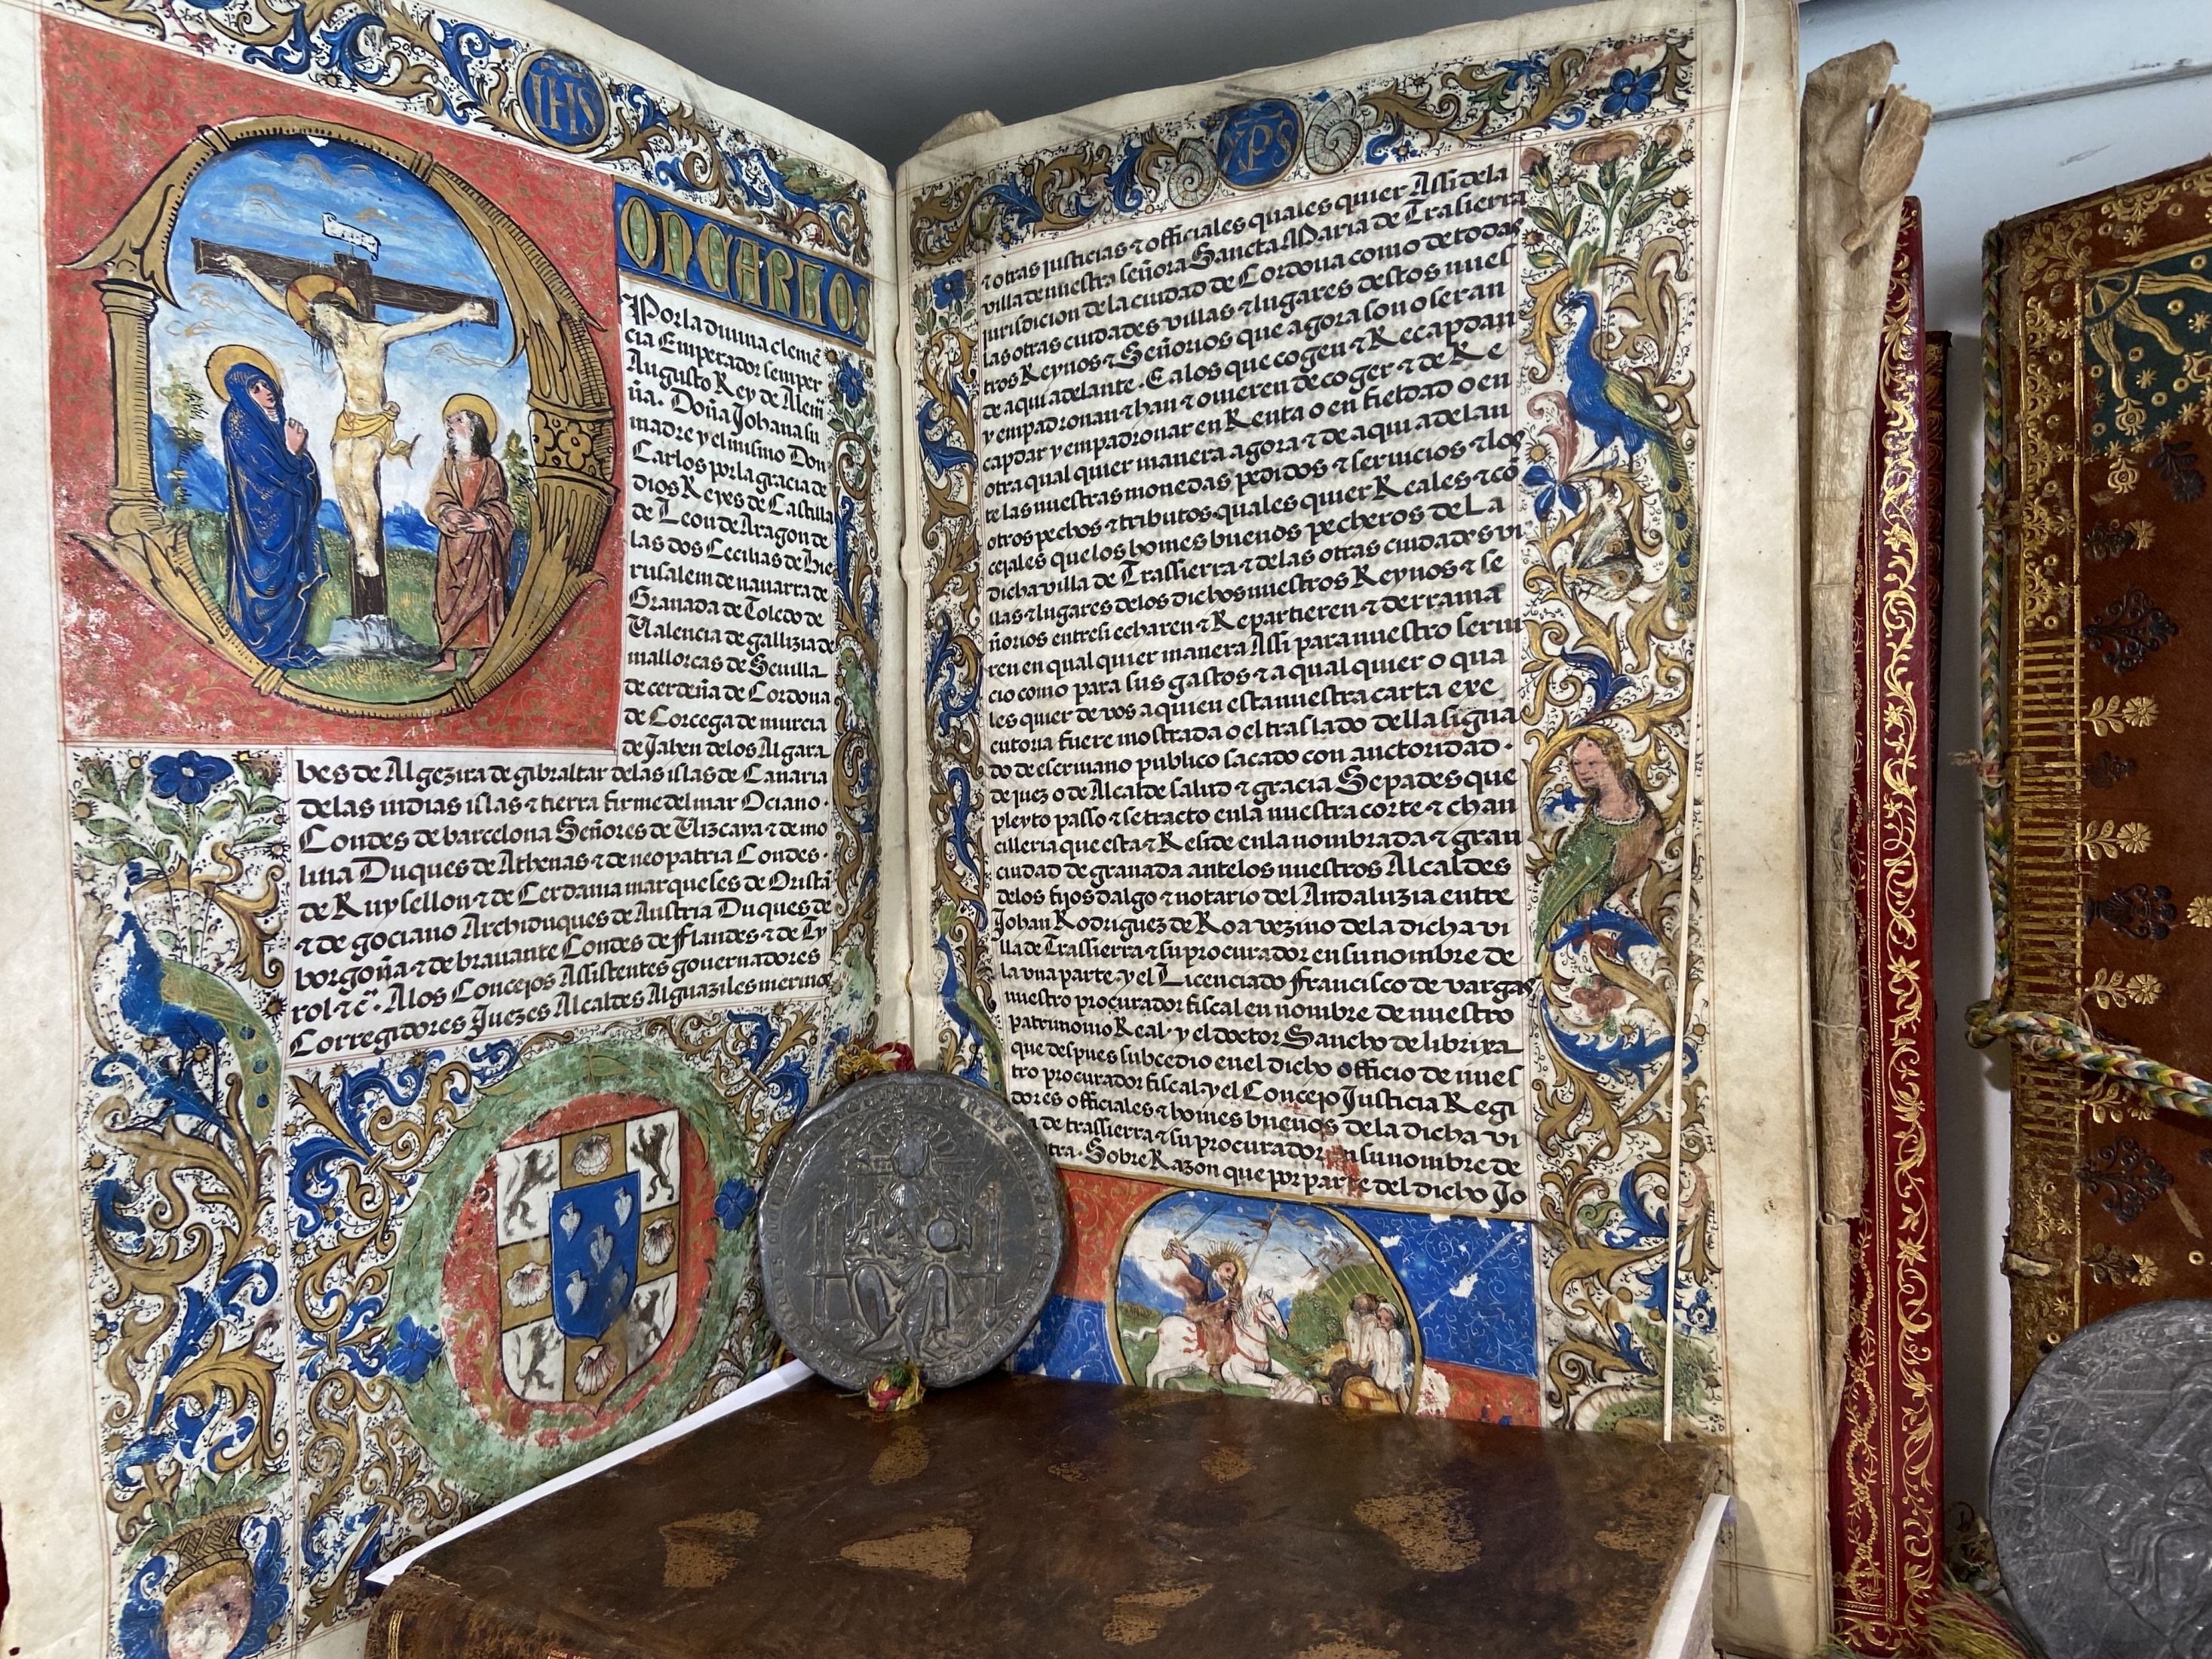 IHS
ON CARLOS
Por la divina clemẽ
cia Emperador semper
Augusto Rey de Alem̃
ña. Doña Johana su
madre y el mismo Don
Carlos por la gracia de
dios Reyes de Castilla
de Leon de Aragon de
las dos Cecilias de Hie
rusalem de navarra de
Granada de Toledo de
Valencia de gallizia de
mallorcas de Sevilla
de cerdeña de Cordova
de Corcega de murcia
de Jahen delos Algara
bes de Algezira de gibraltar delas islas de Canaria
delas indias islas ⁊ tierra firme del mar Oceano.
Condes de barcelona Señores de Vizcaya ⁊ de mo
lina Duques de Athenas ⁊ de neopatria Condes.
de Ruysellon ⁊ de Cerdania marqueses de Oristã
⁊ de gociano Archiduques de Austria Duques de
borgoña ⁊ de bravante Condes de flandes ⁊ de Ty
rol ⁊ cª. A los Concejos Assistentes governadores
Corregidores Juezes Alcaldes Alguaziles merinos
XPS
⁊ otras justicias ⁊ officiales quales quier Assi dela
villa de nuestra señora Sancta Maria de Trasierra
jurisdicion dela ciudad de Cordova como de todas
las otras ciudades villas ⁊ lugares destos nues
tros Reynos ⁊ Señorios que agora son o seran
de aqui adelante. E a los que cogen ⁊ Recabdan
y empadronan ⁊ han ⁊ ovieren de coger ⁊ de Re
capdar y empadronar en Renta o en fieldad o en
otra qual quier manera agora ⁊ de aqui adelan
te las nuestras monedas pedidos ⁊ servicios ⁊ los
otros pechos ⁊ tributos quales quier Reales ⁊ cõ
cejales que los homes buenos pecheros de La
dicha villa de Trassierra ⁊ delas otras ciudades vi
llas ⁊ lugares delos dichos nuestros Reynos ⁊ se
ñorios entresi echaren ⁊ Repartieren ⁊ derramã
ren en qual quier manera Assi para nuestro servi
cio como para sus gastos ⁊ a qual quier o qua
les quier de vos a quien esta nuestra carta exe
cutoria fuere mostrada o el traslado della signa
do de escrivano publico sacado con auctoridad.
de juez o de Alcalde salud ⁊ gracia Sepades que
pleyto passo ⁊ se tracto enla nuestra corte ⁊ chan
cilleria que esta ⁊ Reside enla nombrada ⁊ gran
ciudad de granada ante los nuestros Alcaldes
delos fijos dalgo ⁊ notario del Andaluzia entre
Johan Rodriguez de Roa vezino dela dicha vi
lla de Trassierra ⁊ su procurador en su nombre de
la una parte. y el Licenciado francisco de vargas
nuestro procurador fiscal en nombre de nuestro
patrimonio Real. y el doctor Sancho de librixa
que despues subcedio enel dicho officio de nues
tro procurador fiscal. y el Concejo Justicia Regi
dores officiales ⁊ homes buenos dela dicha vi
de trassierra ⁊ su procurador en su nombre de
tra. Sobre Razon que por parte del dicho Jo